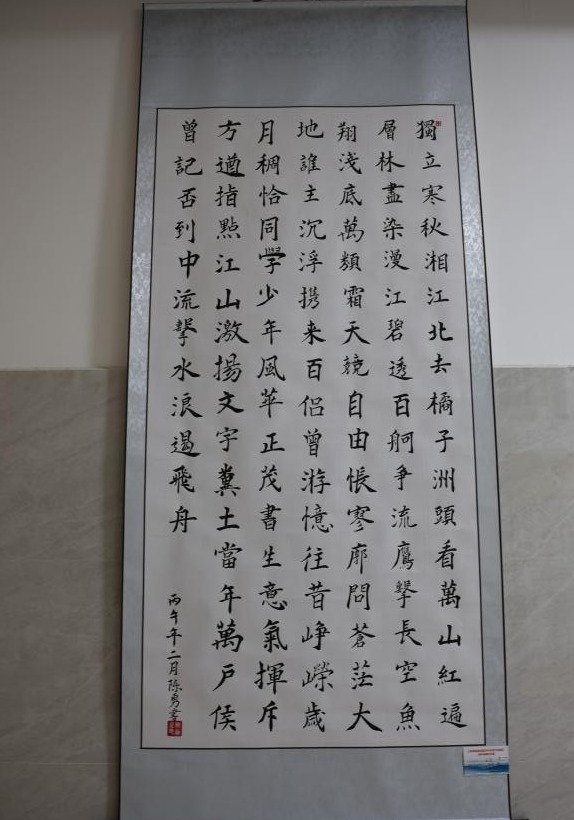 獨立寒秋湘江北去橘子洲頭看萬山紅遍
層林盡染漫江碧透百舸争流鷹擊長空魚
翔淺底萬類霜天競自由悵寥廓問蒼茫大
地誰主沉浮携来百侣曾游憶往昔崢嶸歲
月稠恰同學少年風華正茂書生意氣揮斥
方遒指點江山激揚文字糞土當年萬户侯
曾記否到中流擊水浪遏飛舟
丙午年二月陈勇書